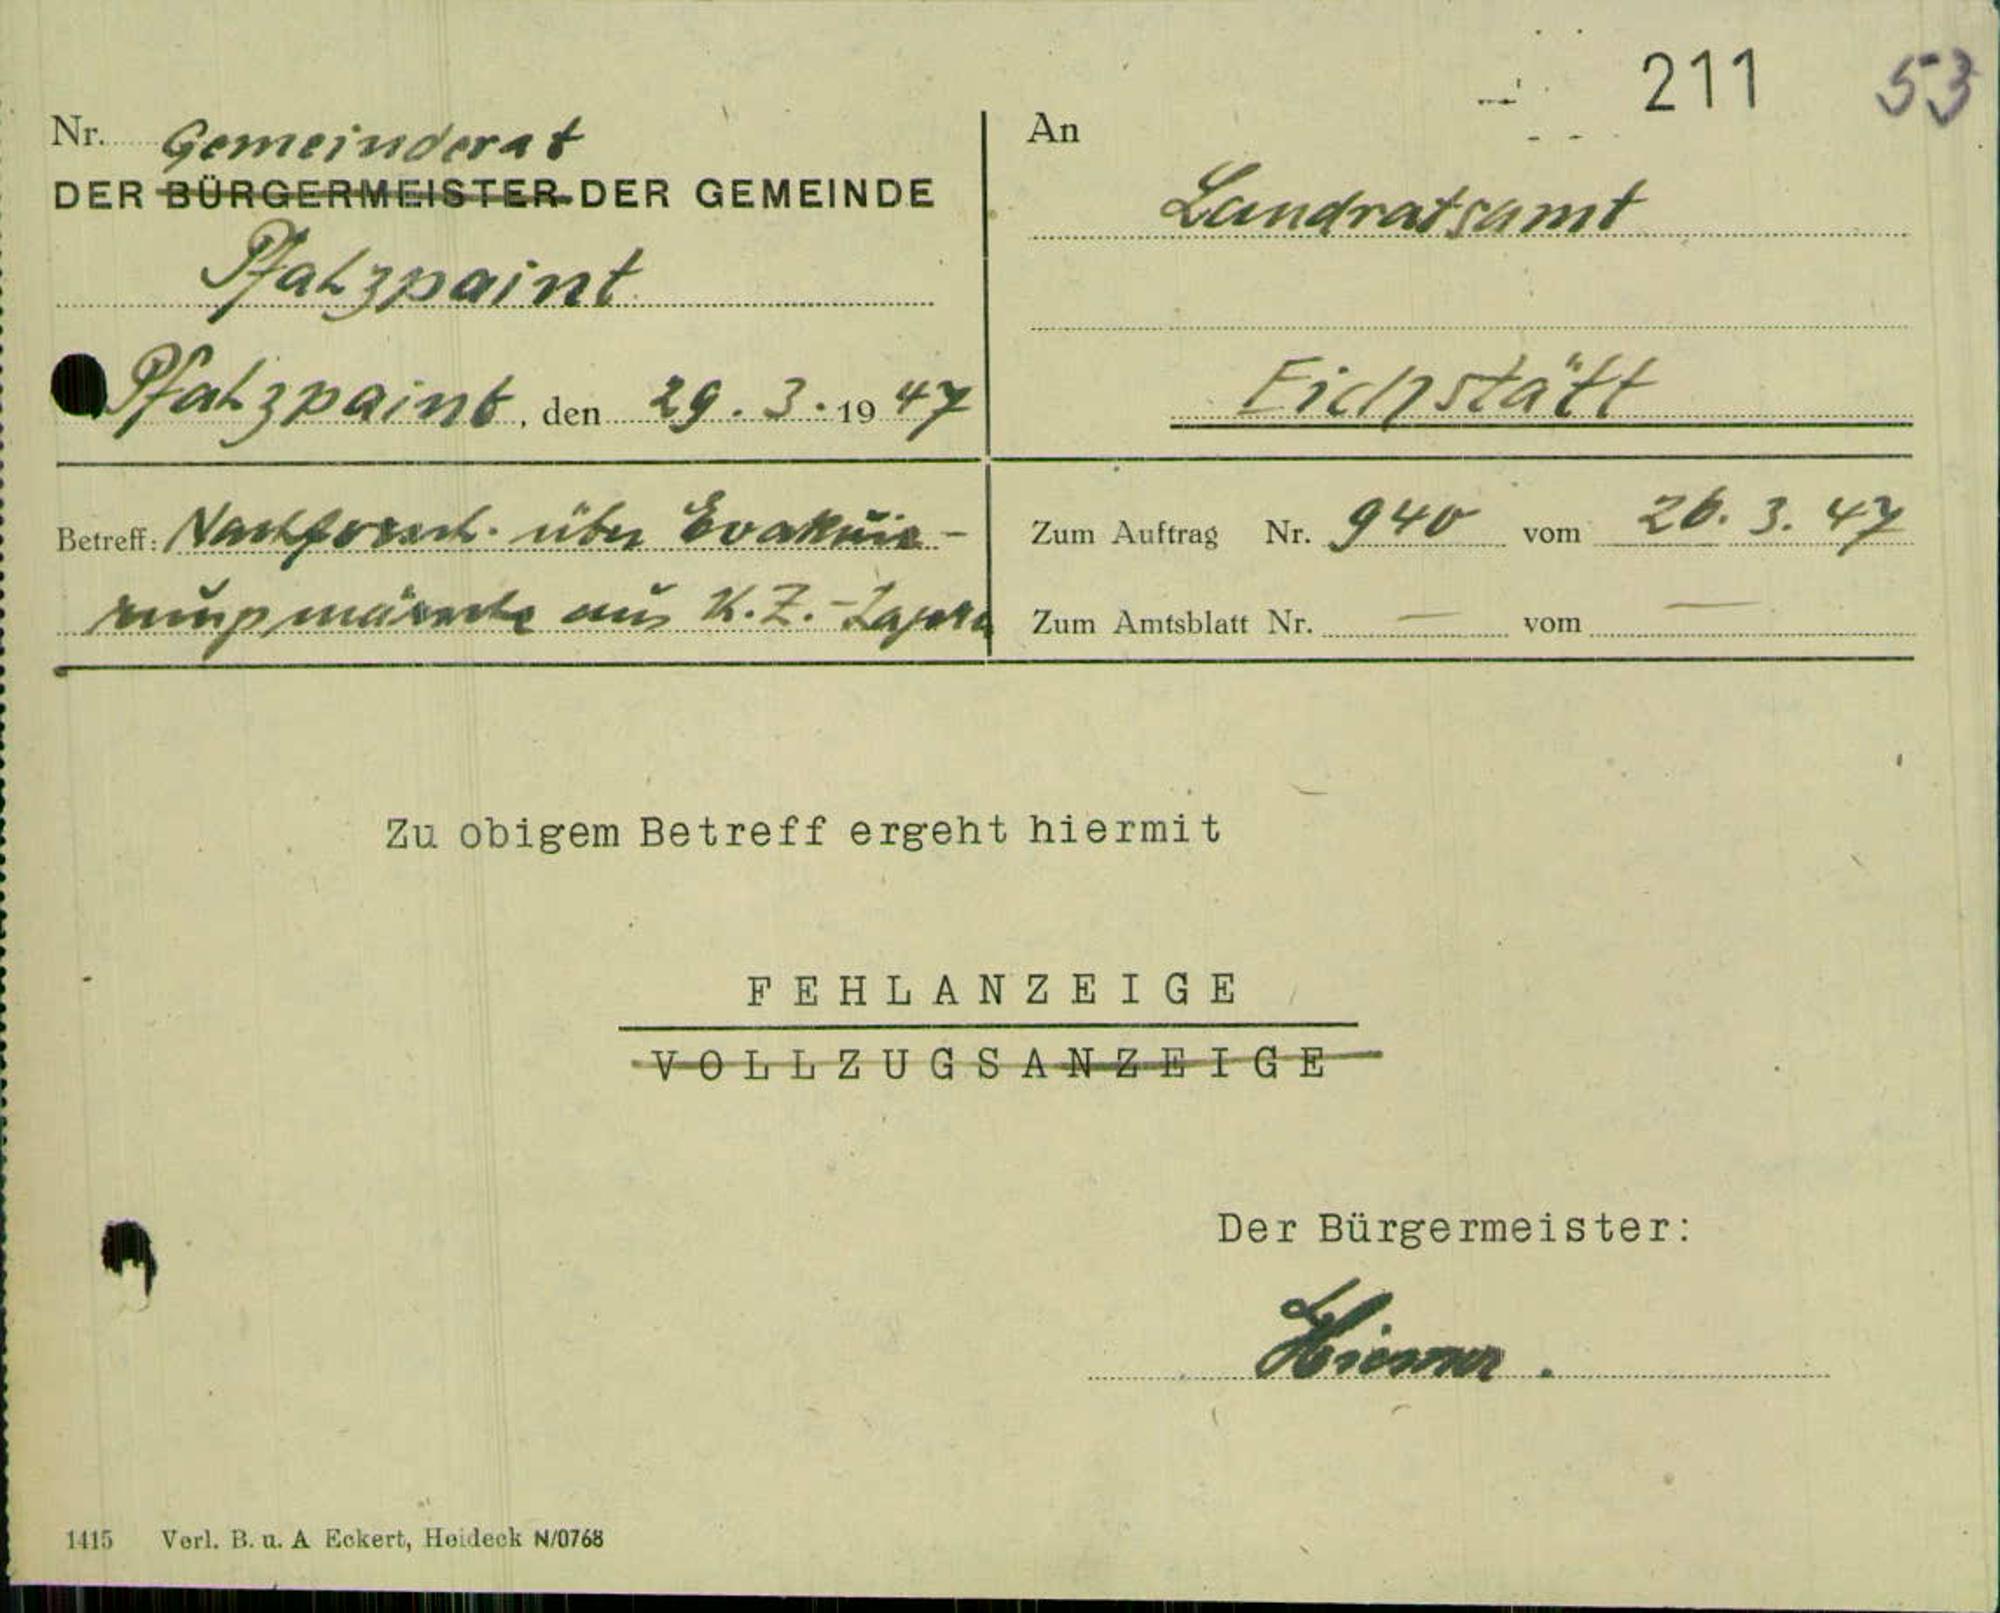 211 53
Nr. Gemeinderat
DER BÜRGERMEISTER DER GEMEINDE
Pfalzpaint
Pfalzpaint, den 29.3.1947
An
Landratsamt
Eichstätt
Betreff: Nachforsch. über Evakuie-
rungsmärsche aus K.Z.-Lagern
Zum Auftrag Nr. 940 vom 26.3.47
Zum Amtsblatt Nr. — vom —
Zu obigem Betreff ergeht hiermit
FEHLANZEIGE
VOLLZUGSANZEIGE
Der Bürgermeister:
1415 Verl. B. u. A Eckert, Heideck N/0768